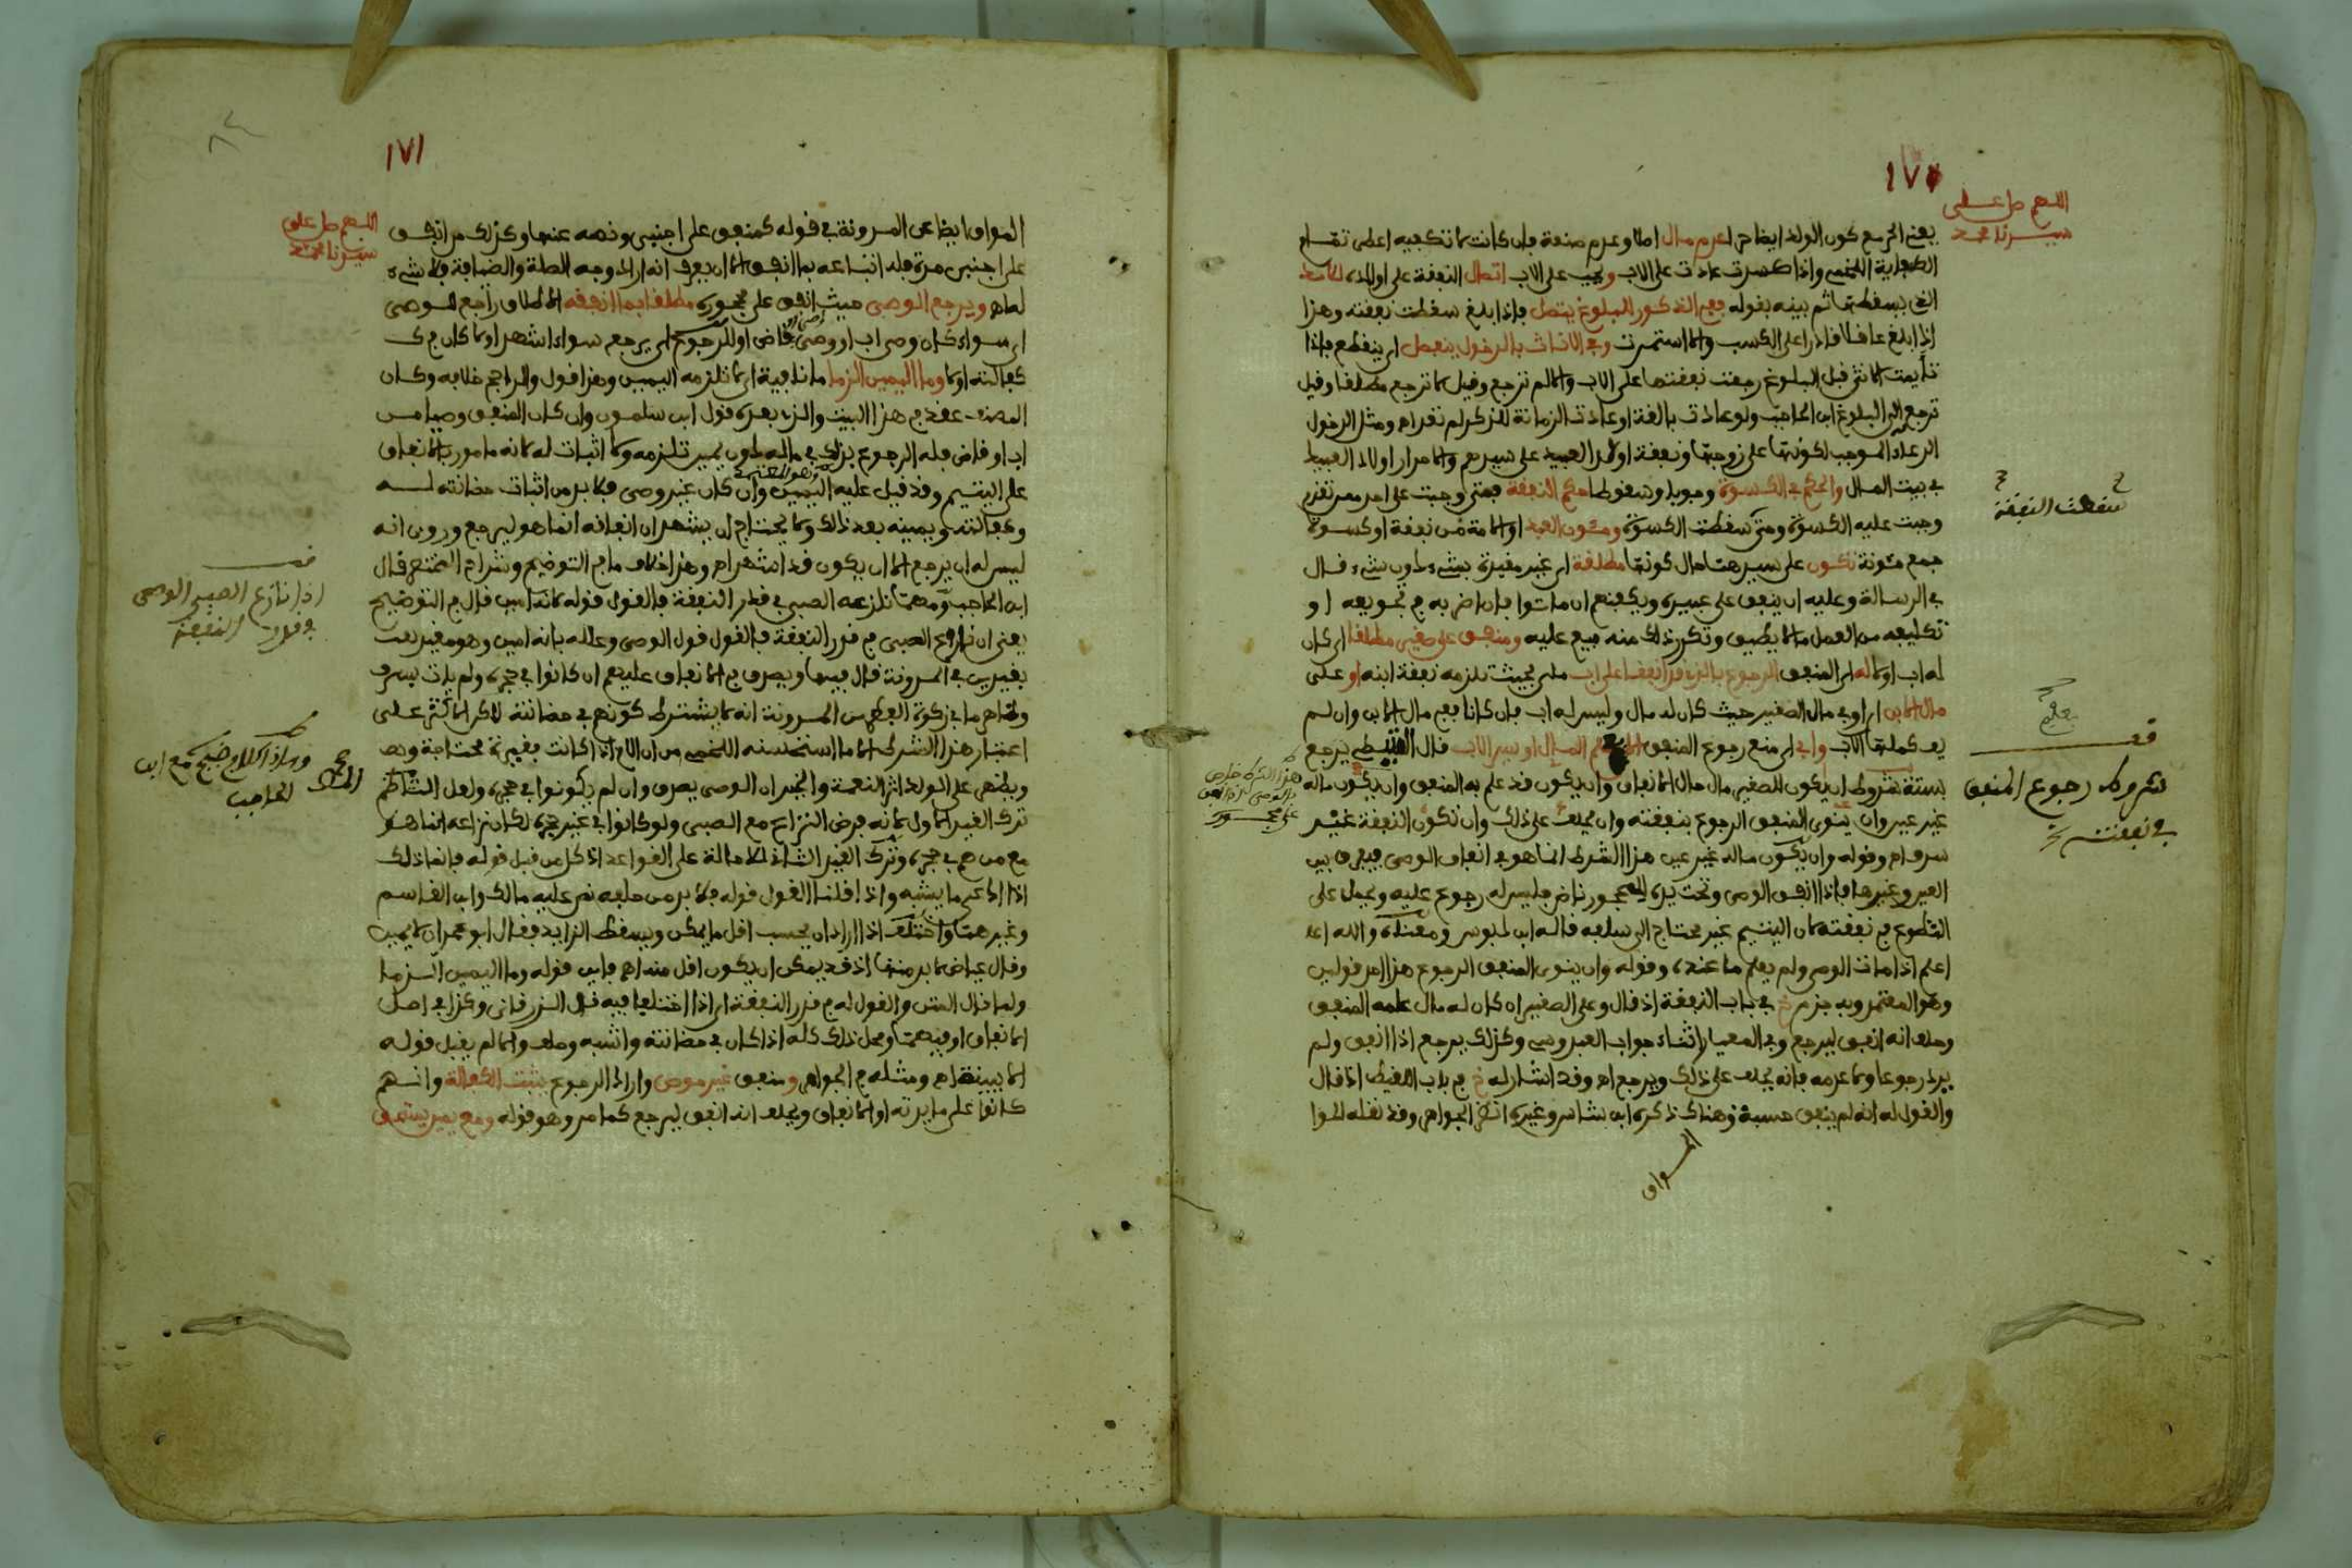 ١٧٠
اللهم صل على
سيدنا محمد
يعني الحر مع كون الولد ايضا حرا عدم مال اصلا وعدم صنعة فان كانت لا تكفيه اعطى تمام
الكفاية اللخمي واذا كسدت عادت على الاب ويجب على الاب اتصال النفقة على اولاده
التي يسقطها ثم بينه بقوله ففي الذكور للبلوغ يتصل فاذا بلغ سقطت نفقته وهذا
اذا بلغ عاقلا قادرا على الكسب والا استمرت وفي الاناث بالدخول ينفصل اي ينقطع فاذا
تأيمت الانثى قبل البلوغ رجعت نفقتها على الاب والا لم ترجع وقيل لا ترجع مطلقا وقيل
ترجع الى البلوغ ابن الحاجب ولو عادت بالغة او عادت الزمانة للذكر لم تعد اه ومثل الدخول
الدعاء الموجب لكونها على زوجها ونفقة اولاد العبيد على سيدهم والاحرار اولاد العبيد
في بيت المال والحكم في الكسوة وجوبا وسقوطا حكم النفقة فمتى وجبت على احد ممن تقدم
وجبت عليه الكسوة ومتى سقطت الكسوة ومئون العبد او الامة من نفقة او كسوة
جمع مئونة تكون على سيدهما حال كونها مطلقة اي غير مقيدة بشيء دون شيء قال
في الرسالة وعليه ان ينفق على عبيده ويكفنهم ان ماتوا فان اضر به في تجويعه او
تكليفه من العمل ما لا يطيق وتكرر ذلك منه بيع عليه ومنفق على صغير مطلقا اي كان
له اب او لا له اي المنفق الرجوع بالذي قد انفقا على اب ملي بحيث تلزمه نفقة ابنه او على
مال الابن اي او في مال الصغير حيث كان له مال وليس له اب فان كانا ففي مال الابن وان لم
يف كملها الاب وابي اي منع رجوع المنفق المال او يسر الاب قال يرجع
بستة شروط ان يكون للصغير مال حال الانفاق وان يكون قد علم به المنفق وان يكون ماله
غير عين وان ينوي المنفق الرجوع بنفقته وان يحلف على ذلك وان تكون النفقة غير
سرف اه وقوله وان يكون ماله غير عين هذا الشرط انما هو في انفاق الوصي فيفرق بين
العين وغيرها فاذا انفق الوصي وتحت يده للمحجور ناض فليس له رجوع عليه ويحمل على
التطوع في نفقته لان اليتيم غير محتاج الى سلفه قاله ابن لبوس ومعناه والله اعلم
اعلم اذا مات الوصي ولم يعلم ما عنده وقوله وان ينوي المنفق الرجوع هذا احد قولين
وهو المعتمد وبه جزم خ في باب النفقة اذ قال وعلى الصغير ان كان له مال علمه المنفق
وحلف انه انفق ليرجع وفي المعيار اثناء جواب العبدوسي وكذلك يرجع اذا انفق ولم
يرد رجوعا ولا عدمه فانه يحلف على ذلك ويرجع اه وقد اشار له خ في باب اللقيط اذ قال
والقول له انه لم ينفق حسبة وهناك ذكره ابن شاس وغيره انظر الجواهر وقد نقله الموا
المواق
سقطت النفقة
قف
شروط رجوع المنفق
في نفقته
هذا الشرط خاص
بالوصي اذا انفق
على محجوره
١٧١
اللهم صل على
سيدنا محمد
المواق ايضا عن المدونة في قوله كمنفق على اجنبي ونصه عنها وكذلك من انفق
على اجنبي مدة فله اتباعه بما انفق الا ان يعرف انه اراد وجه الصلة والضيافة فلا شيء
له اه ويرجع الوصي حيث انفق على محجوره مطلقا بما انفقه الاطلاق راجع للوصي
اي سواء كان وصي اب او وصي قاض او للرجوع اي يرجع سواء اشهد او لا كان في
كفالته او لا وما اليمين الزما ما نافية اي لا تلزمه اليمين وهذا قول والراجح خلافه وكان
المصنف عقد في هذا البيت والذي بعده قول ابن سلمون وان كان المنفق وصيا من
اب او قاض فله الرجوع بذلك في ماله دون يمين تلزمه ولا اثبات له لانه مامور بالانفاق
على اليتيم وقد قيل عليه اليمين وان كان غير وصي فلا بد من اثبات حضانته له
وكفالته ويمينه بعد ذلك ولا يحتاج ان يشهد ان انفاقه انما هو ليرجع وروي انه
ليس له ان يرجع الا ان يكون قد اشهد اه وهذا خلاف ما في التوضيح وشراح المختصر قال
ابن الحاجب ومهما نازعه الصبي في قدر النفقة فالقول قوله لانه امين قال في التوضيح
يعني ان نازع الصبي في قدر النفقة فالقول قول الوصي وعلله بانه امين وهو مقيد
بقيدين في المدونة قال فيها ويصدق في الانفاق عليهم ان كانوا في حجره ولم يات بسرف
وظاهر ما في زكوة الفطر من المدونة انه لا يشترط كونهم في حضانته لاكن الاكثر على
اعتبار هذا الشرط الا ما استحسنه اللخمي من ان الام اذا كانت فقيرة محتاجة
ويظهر على الولد اثر النعمة والخير ان الوصي يصدق وان لم يكونوا في حجره ولعل الناظم
ترك القيد الاول لانه فرض النزاع مع الصبي ولو كانوا في غير حجره لكان نزاعه انما هو
مع من هم في حجره وترك القيد الثاني للاحالة على القواعد اذ كل من قبل قوله فانما ذلك
اذا ادعى ما يشبه واذا قلنا القول قوله فلا بد من حلفه نص عليه مالك وابن القاسم
وغيرهما واختلف اذا اراد ان يحسب اقل ما يمكن ويسقط الزايد فقال ابو عمران لا يمين
وقال عياض لا بد منها اذ قد يمكن ان يكون اقل منه اه فاين قوله وما اليمين الزما
ولما قال المتن والقول له في قدر النفقة اي اذا اختلفا فيه قال الزرقاني وكذا في اصل
الانفاق او فيهما ومحل ذلك كله اذا كان في حضانته واشبه وحلف والا لم يقبل قوله
الا ببينة اه ومثله في الجواهر ومنفق غير موص واراد الرجوع يثبت الكفالة وانهم
كانوا على مايدته او الانفاق ويحلف انه انفق ليرجع كما مر وهو قوله ومع يمين يستحق
قف
اذا نازع الصبي الوصي
في قدر النفقة
الحمد لله
وهذا الكلام صحيح مع ابن
الحاجب